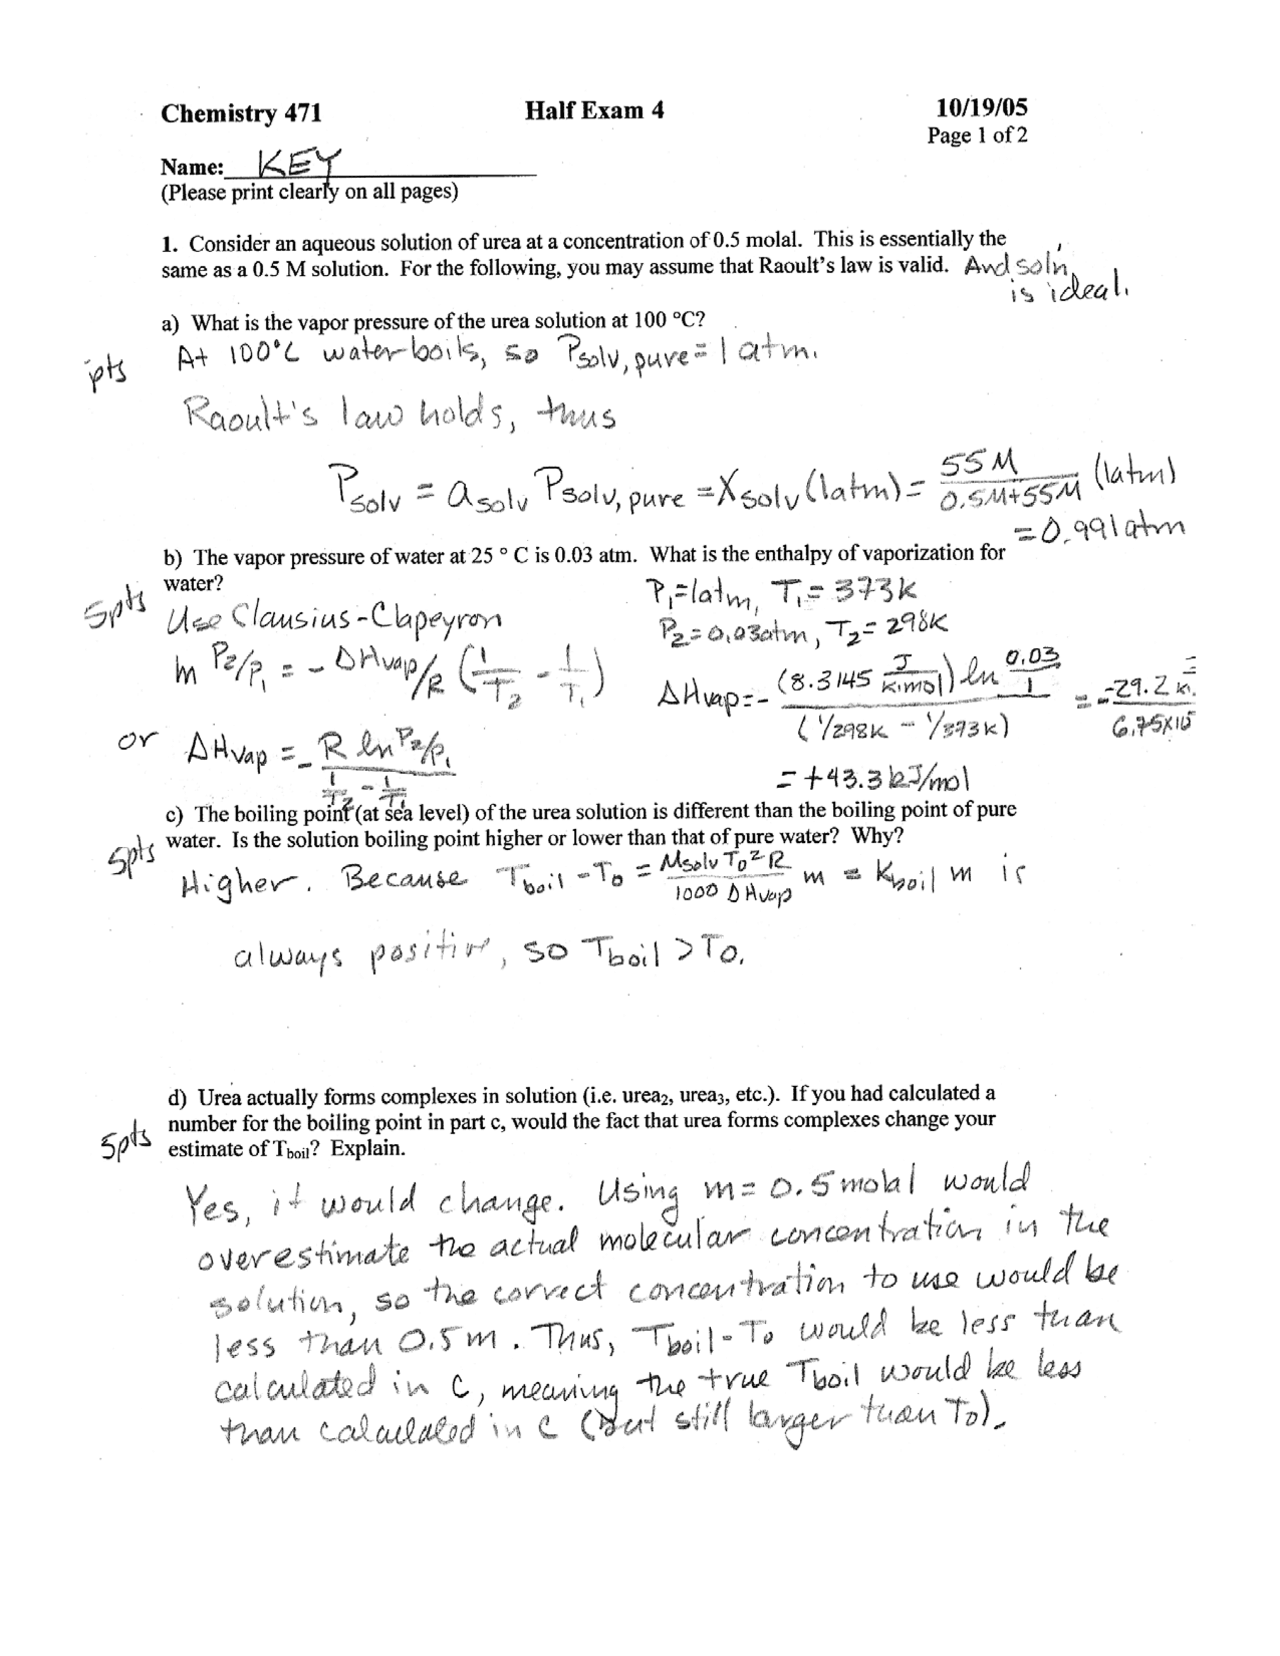 Chemistry 471 Half Exam 4 10/19/05
Page 1 of 2
Name: KEY
(Please print clearly on all pages)
1. Consider an aqueous solution of urea at a concentration of 0.5 molal. This is essentially the
same as a 0.5 M solution. For the following, you may assume that Raoult's law is valid. And soln
is ideal.
a) What is the vapor pressure of the urea solution at 100 °C?
pts At 100°C water boils, so Psolv,pure = 1 atm.
Raoult's law holds, thus
Psolv = asolv Psolv,pure = Xsolv (1atm) = 55M / 0.5M+55M (1atm)
= 0.991atm
b) The vapor pressure of water at 25 ° C is 0.03 atm. What is the enthalpy of vaporization for
water?
5pts Use Clausius-Clapeyron
ln P2/P1 = - ΔHvap/R (1/T2 - 1/T1)
or ΔHvap = - R ln P2/P1 / 1/T2 - 1/T1
P1=1atm, T1 = 373K
P2 = 0.03atm, T2 = 298K
ΔHvap = - (8.3145 J/K·mol) ln 0.03/1 / (1/298K - 1/373K) = - -29.2 / 6.75X10
= +43.3 kJ/mol
c) The boiling point (at sea level) of the urea solution is different than the boiling point of pure
water. Is the solution boiling point higher or lower than that of pure water? Why?
5pts Higher. Because Tboil - T0 = Msolv T0² R / 1000 ΔHvap m = Kboil m is
always positive, so Tboil > T0.
d) Urea actually forms complexes in solution (i.e. urea₂, urea₃, etc.). If you had calculated a
number for the boiling point in part c, would the fact that urea forms complexes change your
5pts estimate of Tboil? Explain.
Yes, it would change. Using m = 0.5 molal would
overestimate the actual molecular concentration in the
solution, so the correct concentration to use would be
less than 0.5 m. Thus, Tboil - T0 would be less than
calculated in c, meaning the true Tboil would be less
than calculated in c (but still larger than T0).